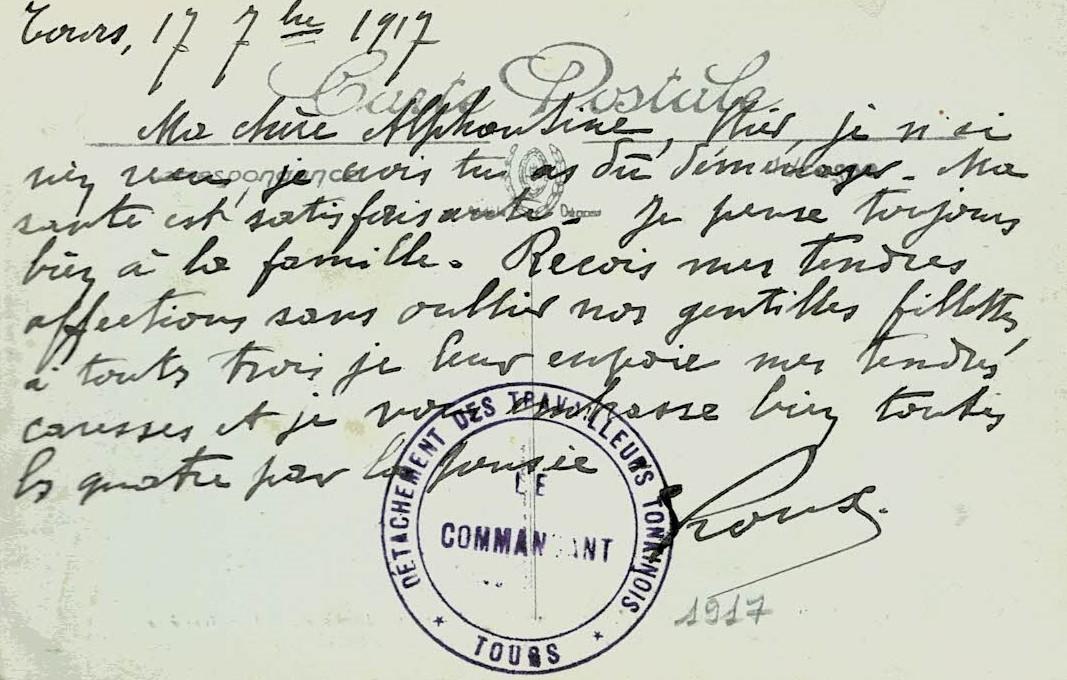 Tours, 17 7bre 1917
Carte Postale
Ma chère Alphonsine, Hier je n'ai
rien reçu, je crois tu as dû déménager. Ma
Correspondance
santé est satisfaisante. Je pense toujours
bien à la famille. Reçois mes tendres
affections sans oublier nos gentilles fillettes,
à toutes trois je leur envoie mes tendres
caresses et je vous embrasse bien toutes
les quatre par la pensée
Roux.
DÉTACHEMENT DES TRAVAILLEURS TONKINOIS
LE
COMMANDANT
* TOURS *
1917